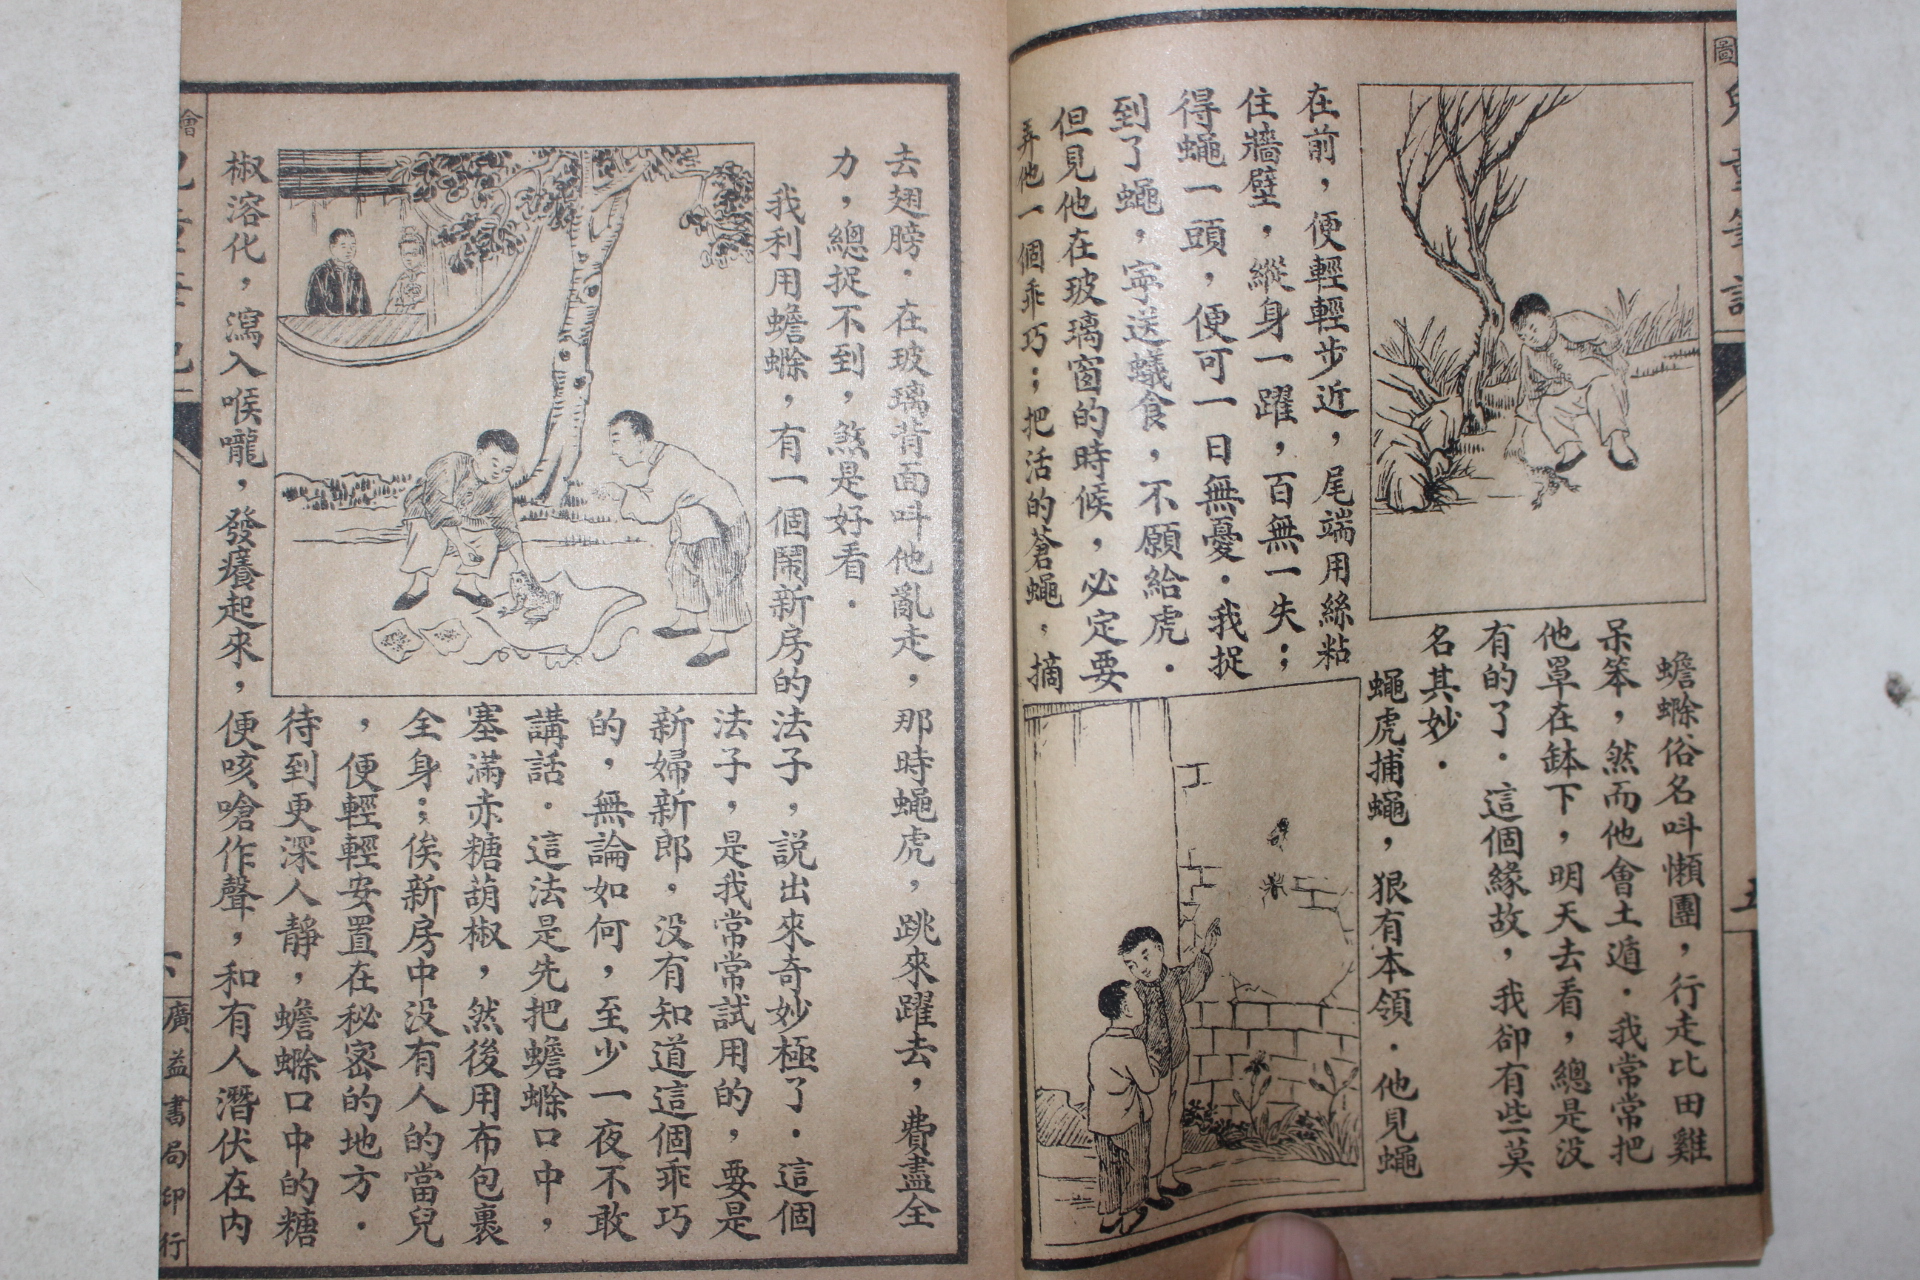 蟾蜍俗名叫懶團，行走比田雞
呆笨，然而他會土遁．我常常把
他罩在缽下，明天去看，總是没
有的了．這個緣故，我卻有些莫
名其妙．
蠅虎捕蠅，狠有本領．他見蠅
在前，便輕輕步近，尾端用絲粘
住牆壁，縱身一躍，百無一失；
得蠅一頭，便可一日無憂．我捉
到了蠅，寜送蟻食，不願給虎．
但見他在玻璃窗的時候，必定要
弄他一個乖巧；把活的蒼蠅，摘
去翅膀．在玻璃背面叫他亂走，那時蠅虎，跳來躍去，費盡全
力，總捉不到，煞是好看．
我利用蟾蜍，有一個鬧新房的法子，説出來奇妙極了．這個
法子，是我常常試用的，要是
新婦新郎，没有知道這個乖巧
的，無論如何，至少一夜不敢
講話．這法是先把蟾蜍口中，
塞滿赤糖葫椒，然後用布包裹
全身；俟新房中没有人的當兒
，便輕輕安置在秘密的地方．
待到更深人靜，蟾蜍口中的糖
椒溶化，瀉入喉嚨，發癢起來，便咳嗆作聲，和有人潛伏在内
廣益書局印行